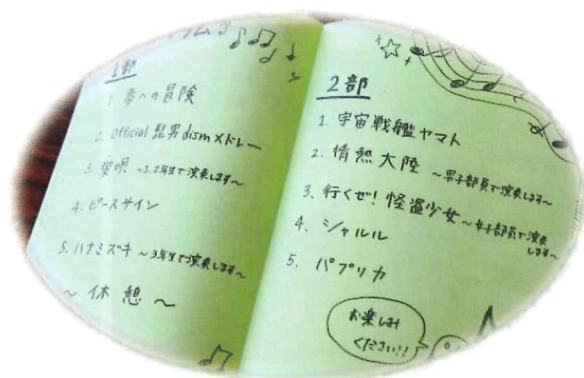 1部
1. 夢への冒険
2. Official髭男dismメドレー
3. 変唄 ~1.2年生で演奏します~
4. ピースサイン
5. ハナミズキ ~3年生で演奏します~
~休憩~
2部
1. 宇宙戦艦ヤマト
2. 情熱大陸 ~男子部員で演奏します~
3. 行くぜ!怪盗少女 ~女子部員で演奏
します~
4. シャルル
5. パプリカ
お楽しみ
ください!!